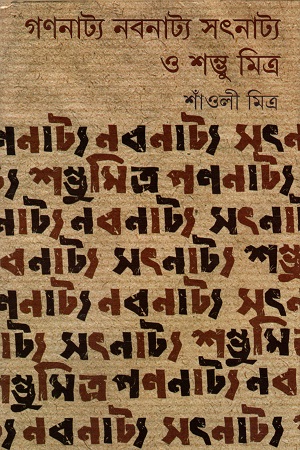 গণনাট্য নবনাট্য সৎনাট্য
ও শম্ভু মিত্র
শাঁওলী মিত্র
ণনাট্য নবনাট্য সৎন
ট্য শম্ভুমিত্র গণনাট্য
নাট্য নবনাট্য সৎনাট্য
বনাট্য সৎনাট্য শম্ভু
ণনাট্য নবনাট্য সৎন
াট্য সৎনাট্য শম্ভুমিত্র
ম্ভুমিত্র গণনাট্য নবন
নবনাট্য সৎনাট্য গণ